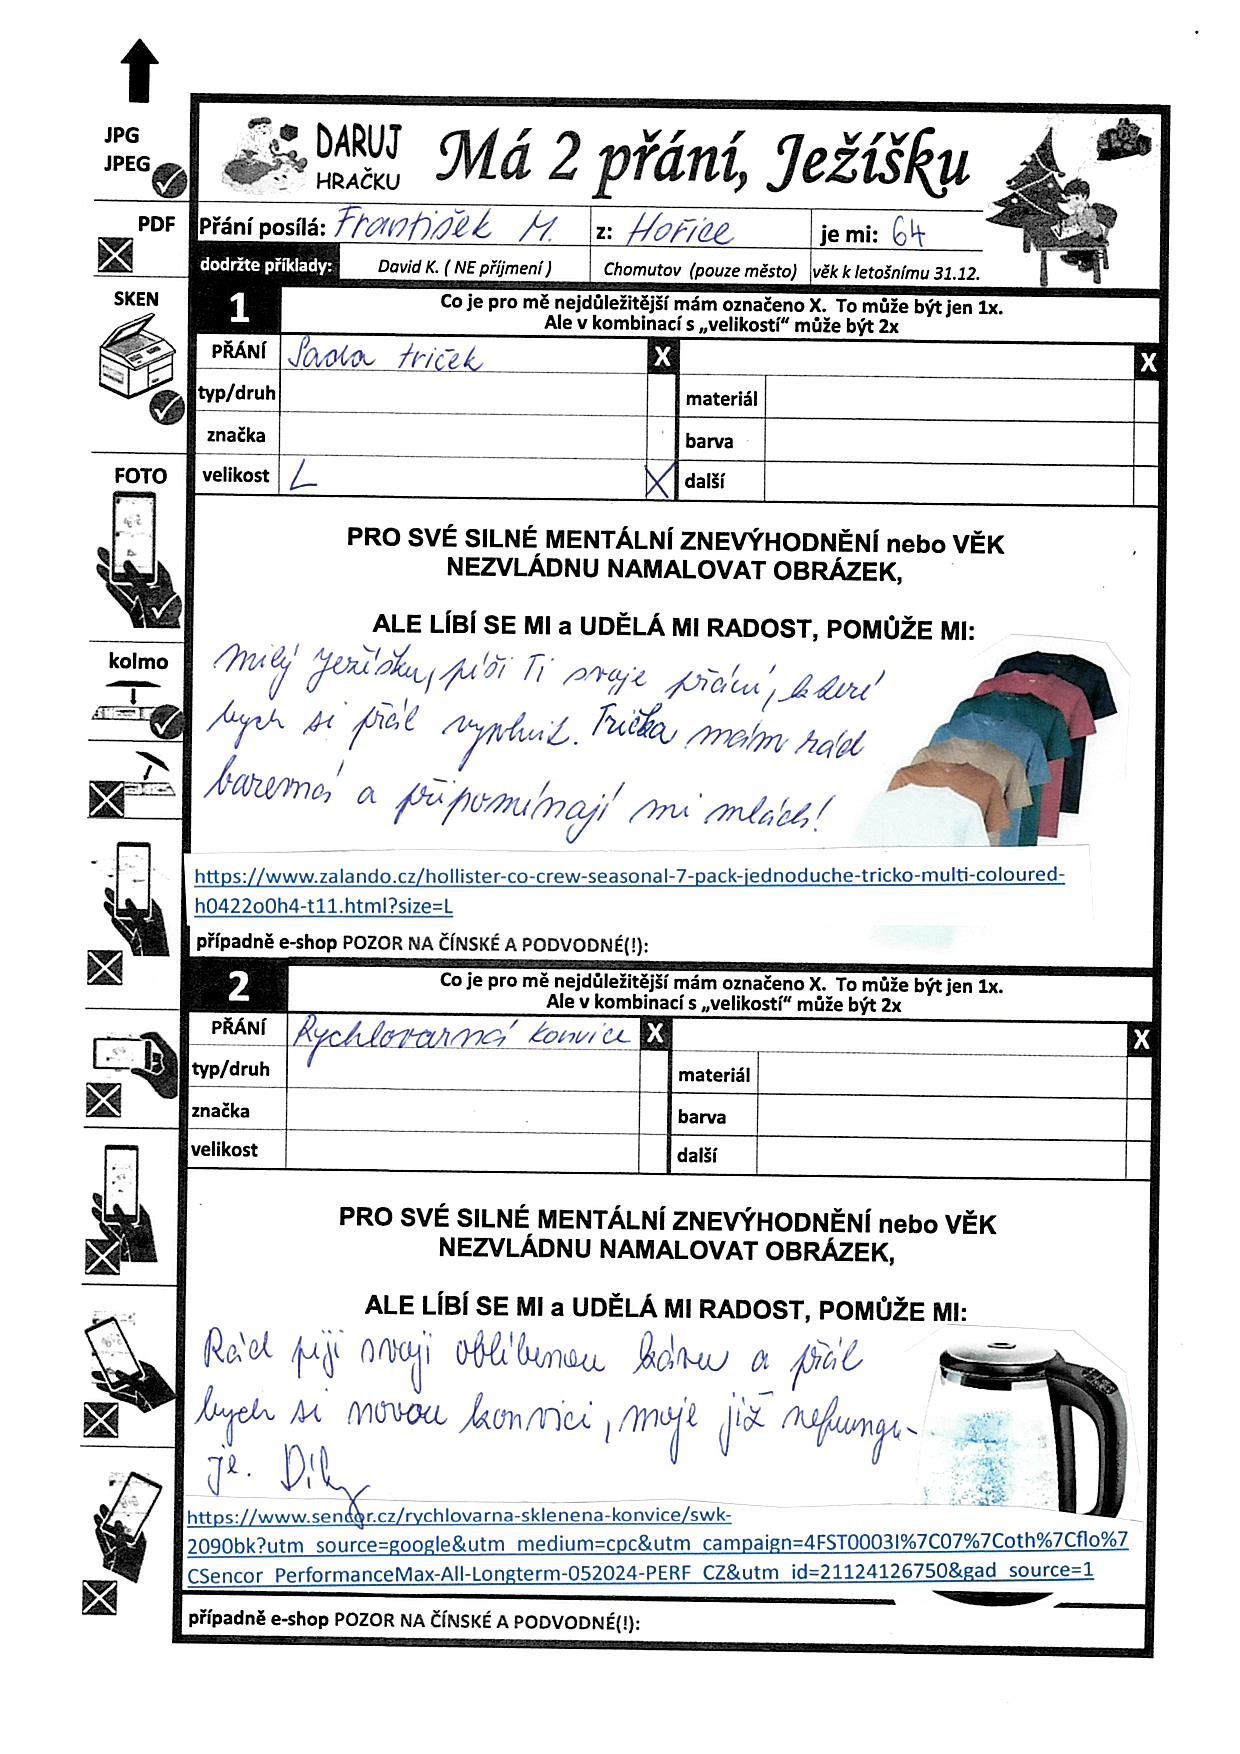 JPG
JPEG
PDF
SKEN
FOTO
kolmo
DARUJ
HRAČKU
Má 2 přání, Ježíšku
Přání posílá: František M. z: Hořice je mi: 64
dodržte příklady: David K. ( NE příjmení ) Chomutov (pouze město) věk k letošnímu 31.12.
1 Co je pro mě nejdůležitější mám označeno X. To může být jen 1x.
Ale v kombinací s „velikostí“ může být 2x
PŘÁNÍ Sada triček X X
typ/druh materiál
značka barva
velikost L X další
PRO SVÉ SILNÉ MENTÁLNÍ ZNEVÝHODNĚNÍ nebo VĚK
NEZVLÁDNU NAMALOVAT OBRÁZEK,
ALE LÍBÍ SE MI a UDĚLÁ MI RADOST, POMŮŽE MI:
Milý Ježíšku, píši Ti svoje přání, které
bych si přál vyplnit. Trička mám rád
baremná a připomínají mi mládí!
https://www.zalando.cz/hollister-co-crew-seasonal-7-pack-jednoduche-tricko-multi-coloured-
h0422o0h4-t11.html?size=L
případně e-shop POZOR NA ČÍNSKÉ A PODVODNÉ(!):
2 Co je pro mě nejdůležitější mám označeno X. To může být jen 1x.
Ale v kombinací s „velikostí“ může být 2x
PŘÁNÍ Rychlovarná konvice X X
typ/druh materiál
značka barva
velikost další
PRO SVÉ SILNÉ MENTÁLNÍ ZNEVÝHODNĚNÍ nebo VĚK
NEZVLÁDNU NAMALOVAT OBRÁZEK,
ALE LÍBÍ SE MI a UDĚLÁ MI RADOST, POMŮŽE MI:
Rád piji svoji oblíbenou kávu a přál
bych si novou konvici, moje již nefungu-
je. Díky
https://www.sencor.cz/rychlovarna-sklenena-konvice/swk-
2090bk?utm_source=google&utm_medium=cpc&utm_campaign=4FST0003I%7C07%7Coth%7Cflo%7
CSencor_PerformanceMax-All-Longterm-052024-PERF_CZ&utm_id=21124126750&gad_source=1
případně e-shop POZOR NA ČÍNSKÉ A PODVODNÉ(!):